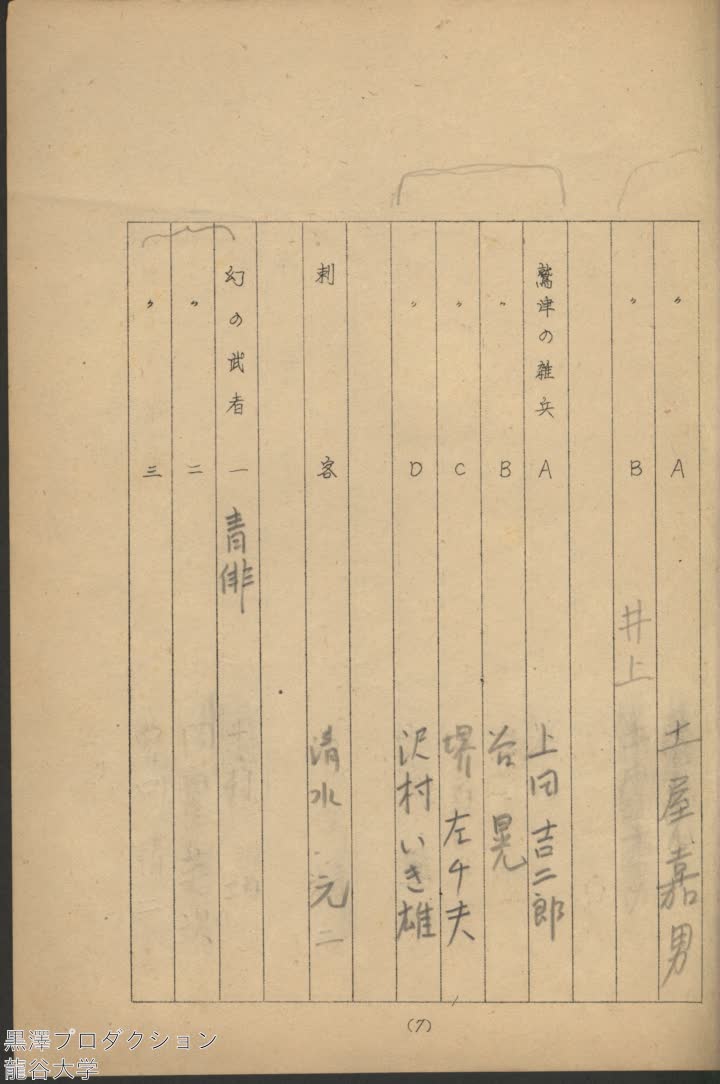 〃 A 土屋嘉男
〃 B 井上
鷲津の雑兵 A 上田吉二郎
〃 B 谷晃
〃 C 堺左千夫
〃 D 沢村いき雄
刺客 清水元二
幻の武者 一 青俳
〃 二
〃 三
(7)
黒澤プロダクション
龍谷大学